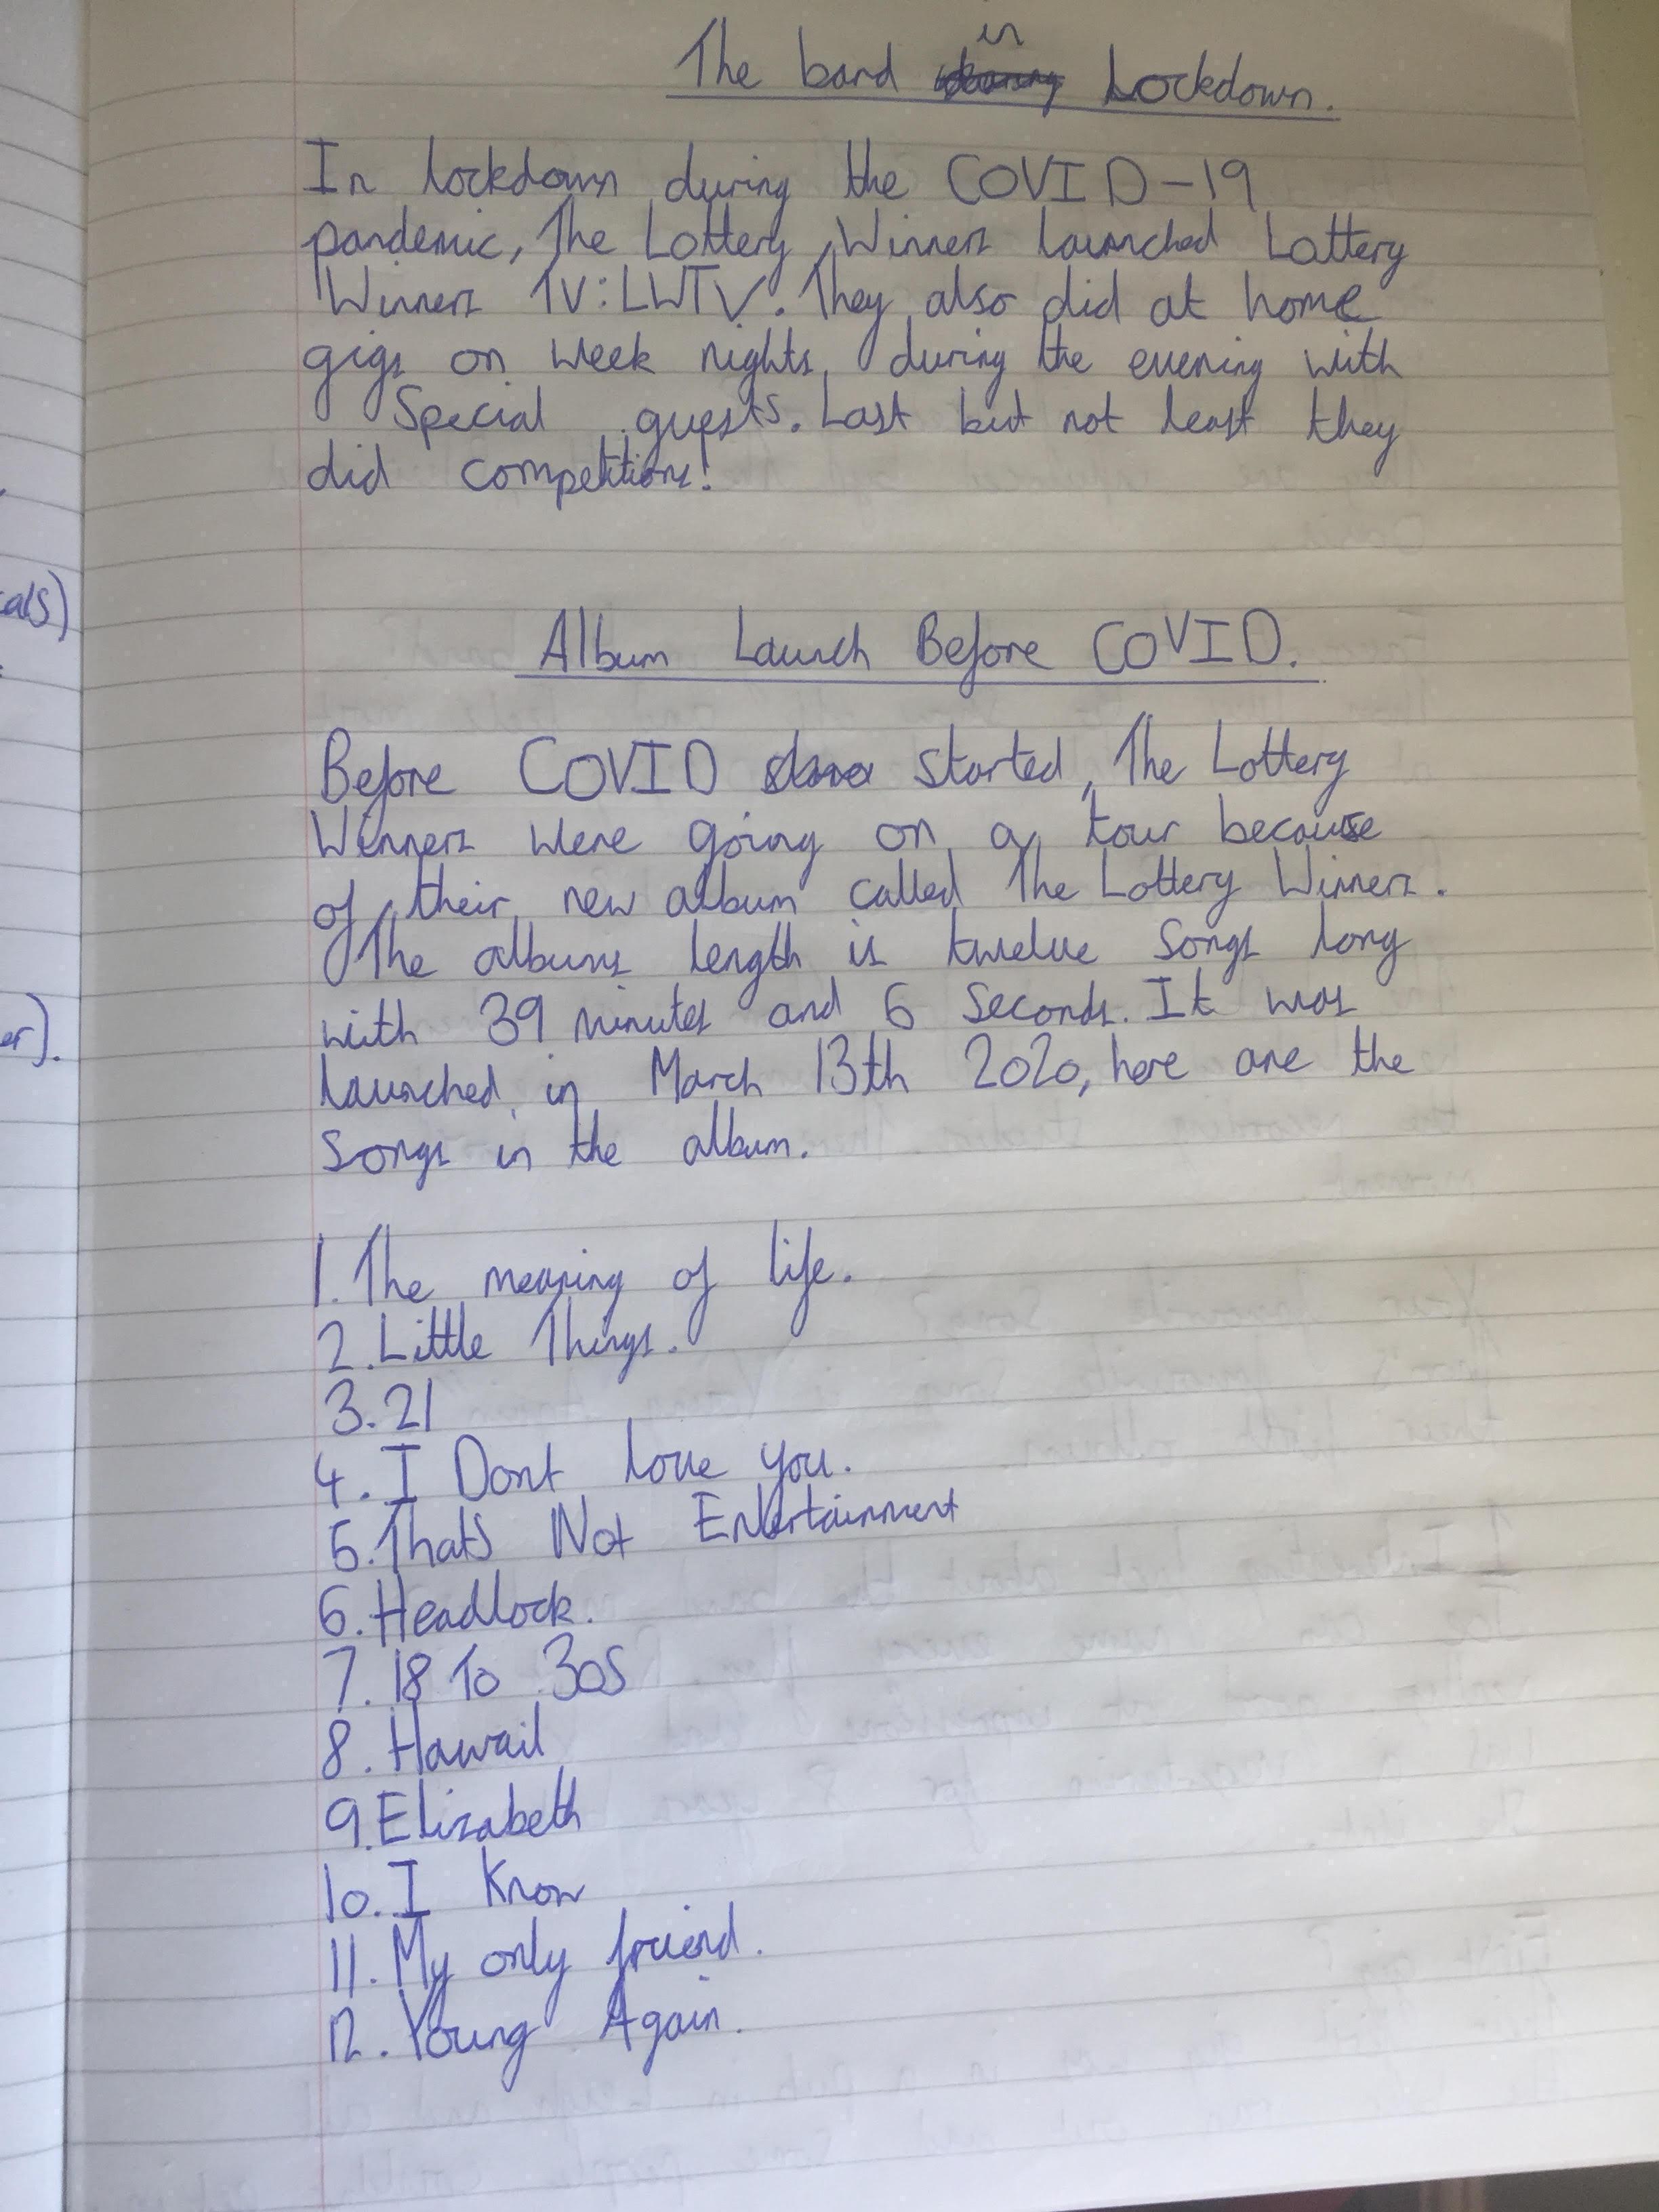 The band in Lockdown.
In lockdown during the COVID-19
pandemic, The Lottery Winners launched Lottery
Winners TV: LWTV. They also did at home
gigs on week nights during the evening with
Special guests. Last but not least they
did competitions!
als)
Album Launch Before COVID.
Before COVID started, The Lottery
Winners were going on a tour because
of their new album called The Lottery Winners.
The albums length is twelve songs long
er).
with 39 minutes and 6 seconds. It was
launched in March 13th 2020, here are the
songs in the album.
1. The meaning of life.
2. Little Things.
3. 21
4. I Dont love you.
5. Thats Not Entertainment
6. Headlock.
7. 18 To 30s
8. Hawaii
9. Elizabeth
10. I Know
11. My only friend.
12. Young Again.